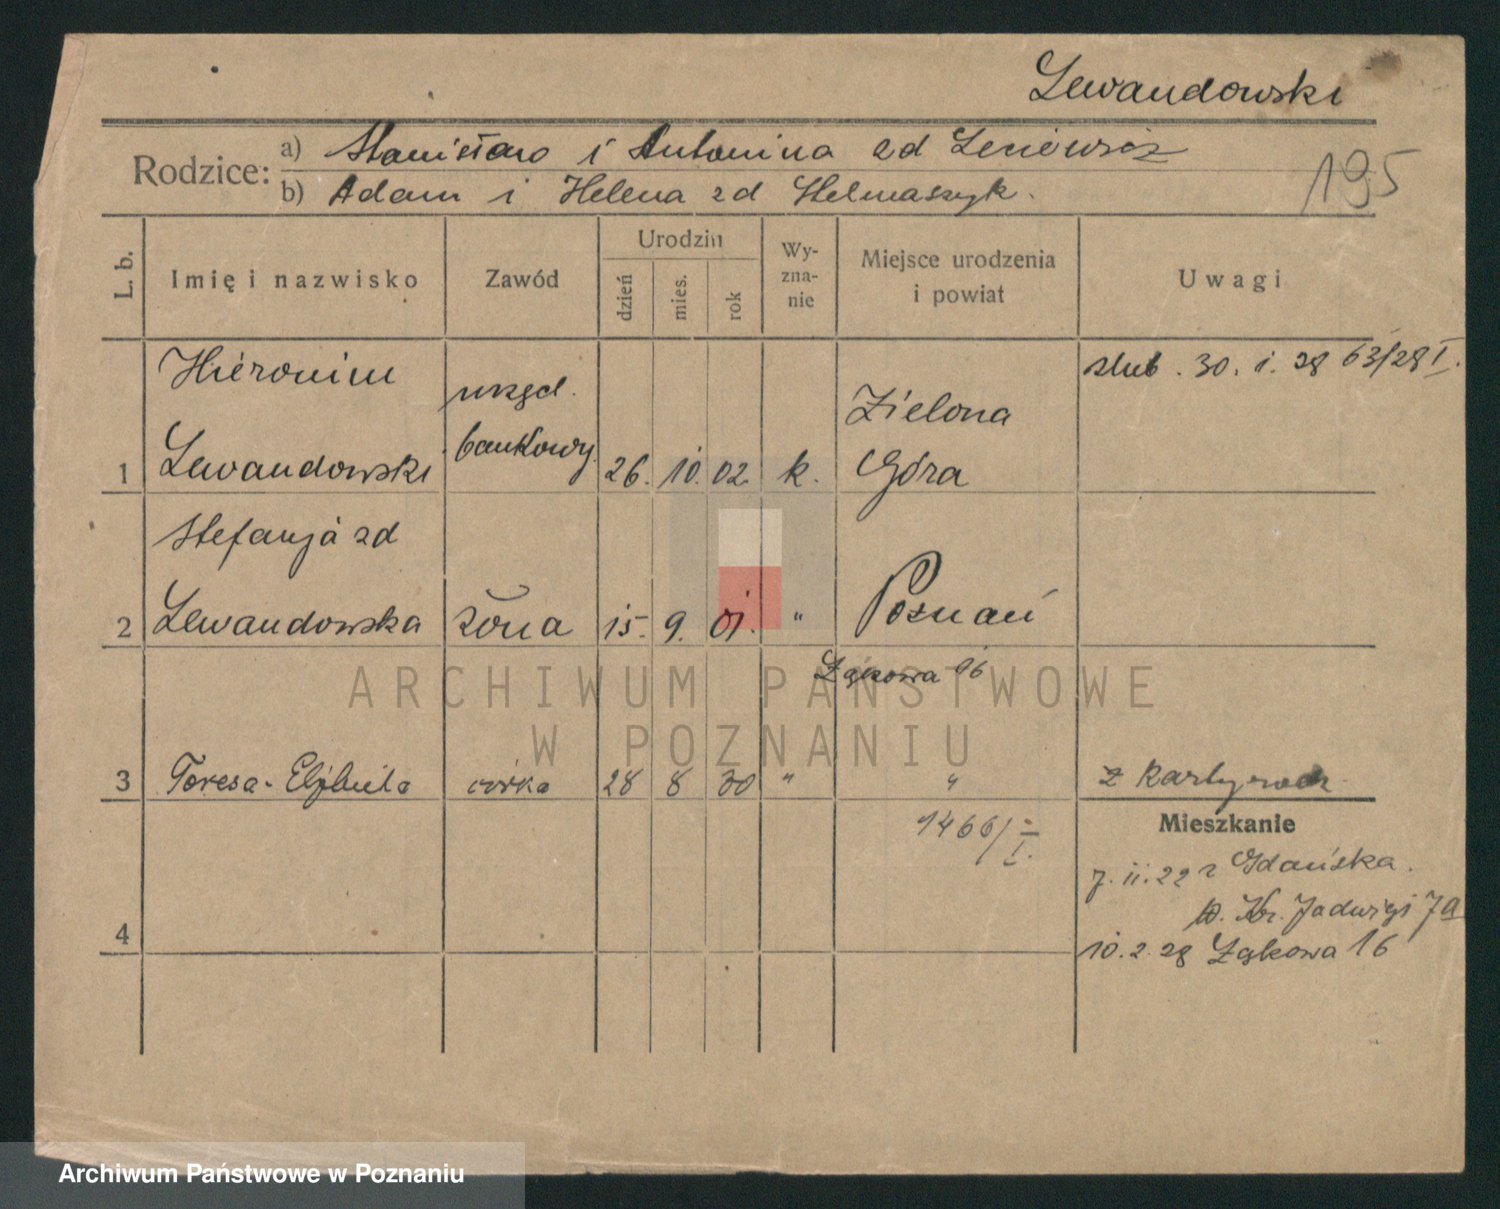 Lewandowski
Rodzice: a) Stanisław i Antonina zd
b) Adam i Helena zd Stelmaszyk.
195
L. b.
Imię i nazwisko
Zawód
Urodzin
dzień
mies.
rok
Wy-
zna-
nie
Miejsce urodzenia
i powiat
Uwagi
Hieronim
Lewandowski
urzęd.
bankowy
1
26. 10. 02. k.
Zielona
Góra
ślub. 30. 1. 28 63/28 I.
Stefanja zd
Lewandowska
2
żona
15. 9. 01. "
Poznań
Łąkowa 16
3 Teresa-Elżbieta córka 28 8 30 " "
z karty
1466/I.
Mieszkanie
7. 11. 22 z Gdańska.
Kr. Jadwigi 7a
4
10. 2. 28 Łąkowa 16
ARCHIWUM PAŃSTWOWE
W POZNANIU
Archiwum Państwowe w Poznaniu